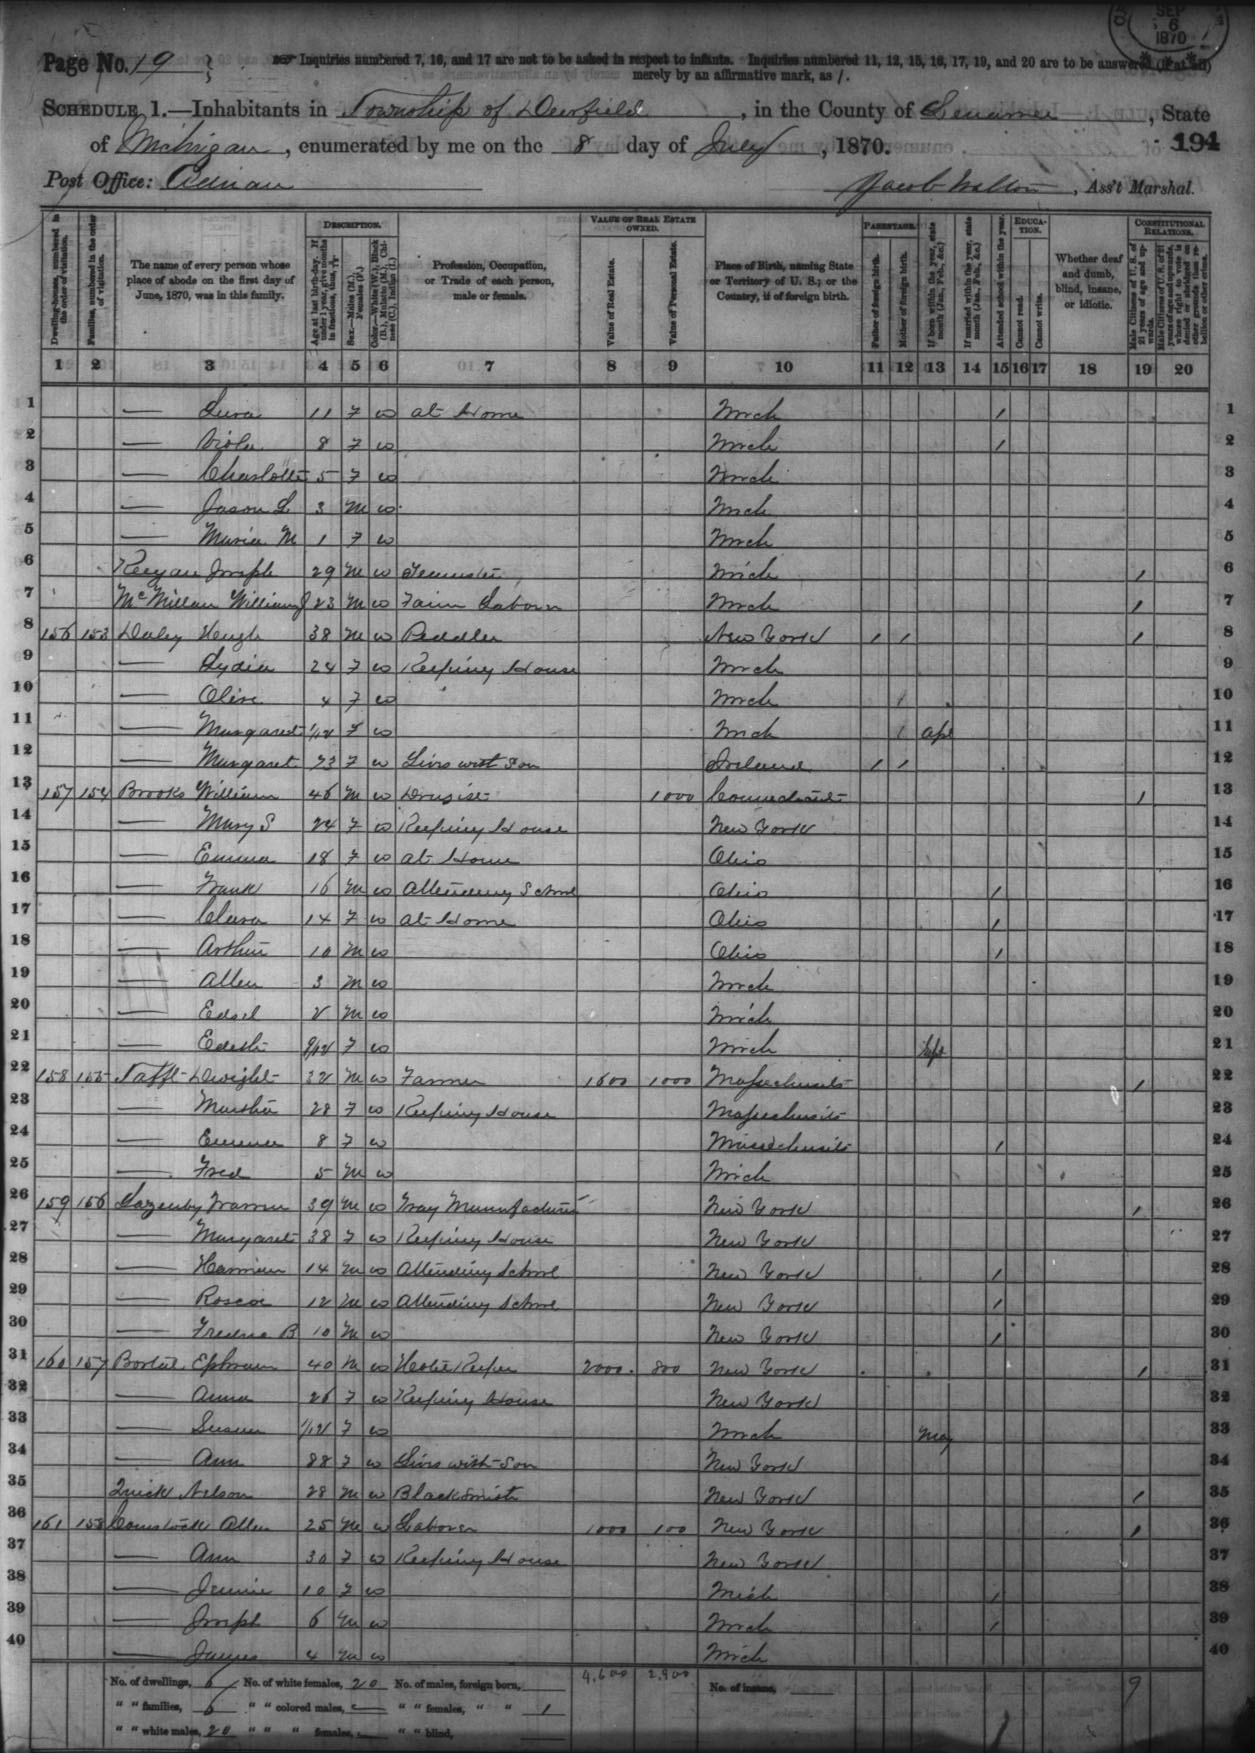 SEP 6 1870
Page No. 19
Inquiries numbered 7, 16, and 17 are not to be asked in respect to infants. Inquiries numbered 11, 12, 15, 16, 17, 19, and 20 are to be answered (if at all)
merely by an affirmative mark, as /.
SCHEDULE 1.—Inhabitants in Township of Deerfield, in the County of Lenawee, State
of Michigan, enumerated by me on the 8 day of July, 1870.
194
Post Office: Adrian
Jacob Walton, Ass't Marshal.
Dwelling-houses, numbered in the order of visitation.
Families, numbered in the order of visitation.
The name of every person whose place of abode on the first day of June, 1870, was in this family.
DESCRIPTION.
Age at last birth-day. If under 1 year, give months in fractions, thus, 3/12
Sex.—Males (M.), Females (F.)
Color.—White (W.), Black (B.), Mulatto (M.), Chinese (C.), Indian (I.)
Profession, Occupation, or Trade of each person, male or female.
VALUE OF REAL ESTATE OWNED.
Value of Real Estate.
Value of Personal Estate.
Place of Birth, naming State or Territory of U. S.; or the Country, if of foreign birth.
PARENTAGE.
Father of foreign birth.
Mother of foreign birth.
If born within the year, state month (Jan., Feb., &c.)
If married within the year, state month (Jan., Feb., &c.)
Attended school within the year.
EDUCATION.
Cannot read.
Cannot write.
Whether deaf and dumb, blind, insane, or idiotic.
CONSTITUTIONAL RELATIONS.
Male Citizens of U. S. of 21 years of age and upwards.
Male Citizens of U. S. of 21 years of age and upwards, whose right to vote is denied or abridged on other grounds than rebellion or other crime.
1 2 3 4 5 6 7 8 9 10 11 12 13 14 15 16 17 18 19 20
1 — 11 F W At Home Mich / 1
2 — Viola 8 F W Mich / 2
3 — Charlotte 5 F W Mich 3
4 — Jason L 3 M W Mich 4
5 — Maria M 1 F W Mich 5
6 Joseph 29 M W Teamster Mich / 6
7 McMillan William J 23 M W Farm Laborer Mich / 7
8 156 153 Daley Hugh 38 M W Peddler New York / / / 8
9 — Lydia 24 F W Keeping House Mich 9
10 — Olive 4 F W Mich / 10
11 — Margaret F W Mich / Apl 11
12 — Margaret 73 F W Lives with Son Ireland / / 12
13 157 154 Brooks William 46 M W Drugist 1000 Connecticut / 13
14 — Mary S 24 F W Keeping House New York 14
15 — Emma 18 F W At Home Ohio 15
16 — Frank 16 M W Attending School Ohio / 16
17 — Clara 14 F W At Home Ohio / 17
18 — Arthur 10 M W Ohio / 18
19 — Allen 3 M W Mich 19
20 — Edsel 2 M W Mich 20
21 — Edeth 9/12 F W Mich Sept 21
22 158 155 Tafft Dwight 32 M W Farmer 1600 1000 Massachusets / 22
23 — Martha 28 F W Keeping House Massachusits 23
24 — 8 F W Massachusits / 24
25 — Fred 5 M W Mich 25
26 159 156 Lazenby 39 M W Manufacturer New York / 26
27 — Margaret 38 F W Keeping House New York 27
28 — Harrison 14 M W Attending School New York / 28
29 — Roscoe 12 M W Attending School New York / 29
30 — B 10 M W New York / 30
31 160 157 Ephraim 40 M W Hotel Keeper 2000 800 New York / 31
32 — Anna 26 F W Keeping House New York 32
33 — Susan 1/12 F W Mich May 33
34 — Ann 88 F W Lives with Son New York 34
35 Quick Nelson 28 M W Blacksmith New York / 35
36 161 158 Comstock Allen 25 M W Laborer 1000 100 New York / 36
37 — Ann 30 F W Keeping House New York 37
38 — Jennie 10 F W Mich / 38
39 — Joseph 6 M W Mich / 39
40 — James 4 M W Mich 40
No. of dwellings, 6 No. of white females, 20 No. of males, foreign born, 4,600 2,900 No. of insane, 9
" " families, 6 " " colored males, — " " females, " " 1
" " white males, 20 " " " females, — " " blind,